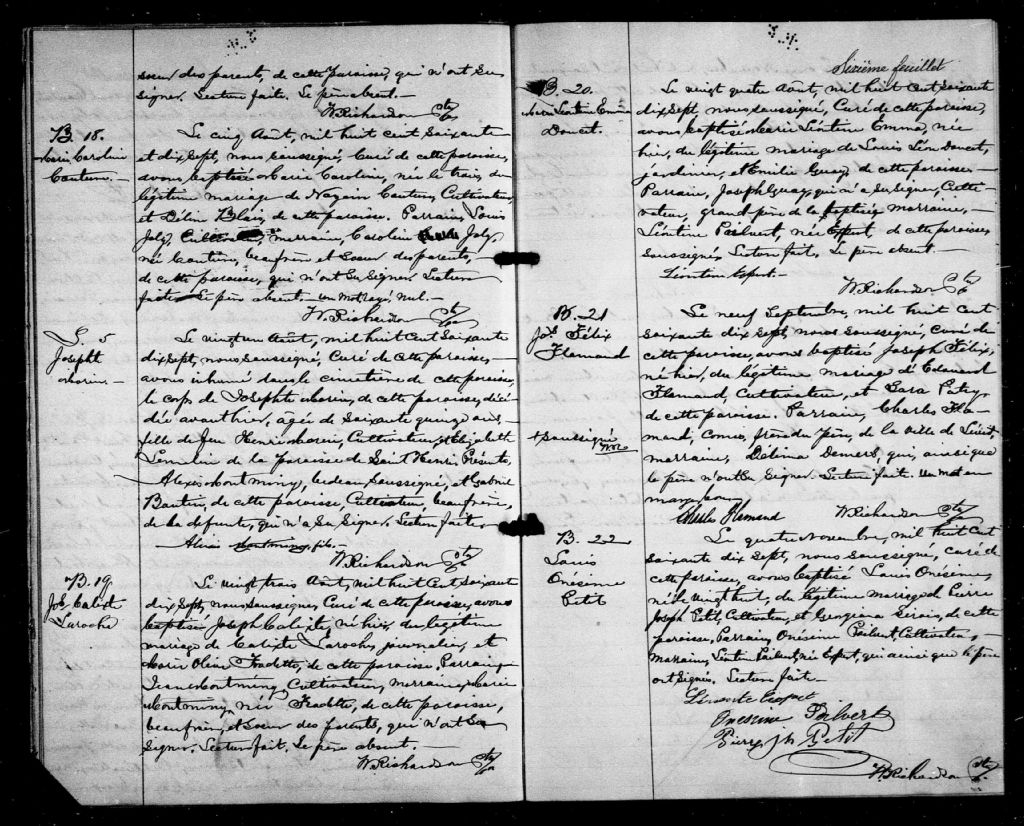 sœur des parents, de cette paroisse, qui n'ont su
signer. Lecture faite. Le père absent. —
W. Richardson Ptre
B. 18.
Marie Caroline
Couture. —
Le cinq Août, mil huit cent soixante
et dix sept, nous soussigné, Curé de cette paroisse,
avons baptisé Marie Caroline, née le trois, du
légitime mariage de Couture, Cultivateur,
et Blais, de cette paroisse. Parrain, Louis
Joly, Cultivateur, marraine, Caroline Joly,
née Couture, beaufrère et sœur des parents, —
de cette paroisse, qui n'ont su signer. Lecture
faite. Le père absent. — un mot rayé nul. —
W. Richardson Ptre
S. 5
Josephte
Morin. —
Le vingt un Août, mil huit cent soixante
dix sept, nous soussigné, Curé de cette paroisse, —
avons inhumé dans le cimetière de cette paroisse,
le corps de Josephte Morin, de cette paroisse, décé-
dée avant hier, agée de soixante quinze ans,
fille de feu Henri Morin, Cultivateur, et Elizabeth
Lemelin de la paroisse de Saint Henri. Présents,
Alexis Montminy, bedeau soussigné, et Gabriel
de cette paroisse, Cultivateur, beaufrère,
de la defunte, qui n'a su signer. Lecture faite.
Alexis Montminy, fils. —
W. Richardson Ptre
B. 19.
Jos. Calixte
Laroche
Le vingt trois Août, mil huit cent soixante
dix sept, nous soussigné, Curé de cette paroisse, avons
baptisé Joseph Calixte, né hier, du légitime
mariage de Calixte Laroche, journalier, et
Marie Olive Fradette, de cette paroisse. Parrain,
Jean Montminy, Cultivateur, marraine, Marie
Montminy, née Fradette, de cette paroisse,
beaufrère, et sœur des parents, qui n'ont su
signer. Lecture faite. Le père absent. —
W. Richardson Ptre
Sixième feuillet
B. 20.
Marie Léontine Emma
Doucet.
Le vingt quatre Août, mil huit cent soixante
dix sept, nous soussigné, Curé de cette paroisse,
avons baptisé Marie Léontine Emma, née
hier, du légitime mariage de Louis Léon Doucet,
jardinier, et Emilie Guay, de cette paroisse. —
Parrain, Joseph Guay, qui n'a su signer, Culti-
vateur, grand-père de la baptisée, marraine, —
Léontine née de cette paroisse
soussignée, Lecture faite. Le père absent.
W. Richardson Ptre
B. 21
Jos. Félix
Flamand
+ soussigné
W. R.
Le neuf Septembre, mil huit cent
soixante dix sept, nous soussigné, curé de
cette paroisse, avons baptisé Joseph Félix,
né hier, du légitime mariage d'Edouard
Flamand, Cultivateur, et
de cette paroisse. Parrain, Charles Fla-
mand, Commis, frère du père, de la ville de Lévis,
marraine, Délina Demers, qui, ainsi que
le père n'ont su signer. Lecture faite. Un mot en
marge bon.
Charles Flamand W. Richardson Ptre
B. 22
Louis
Onésime
Petit
Le quatre Novembre, mil huit cent
soixante dix sept, nous soussigné, curé de
cette paroisse, avons baptisé Louis Onésime,
né le vingt huit, du légitime mariage de Pierre
Joseph Petit, Cultivateur, et Georgiana Sirois, de cette
paroisse, Parrain, Onésime Cultivateur, —
Marraine, Léontine née qui ainsi que le père
ont signés. Lecture faite. —
Onesime
Pierre Jh Petit
W. Richardson Ptre